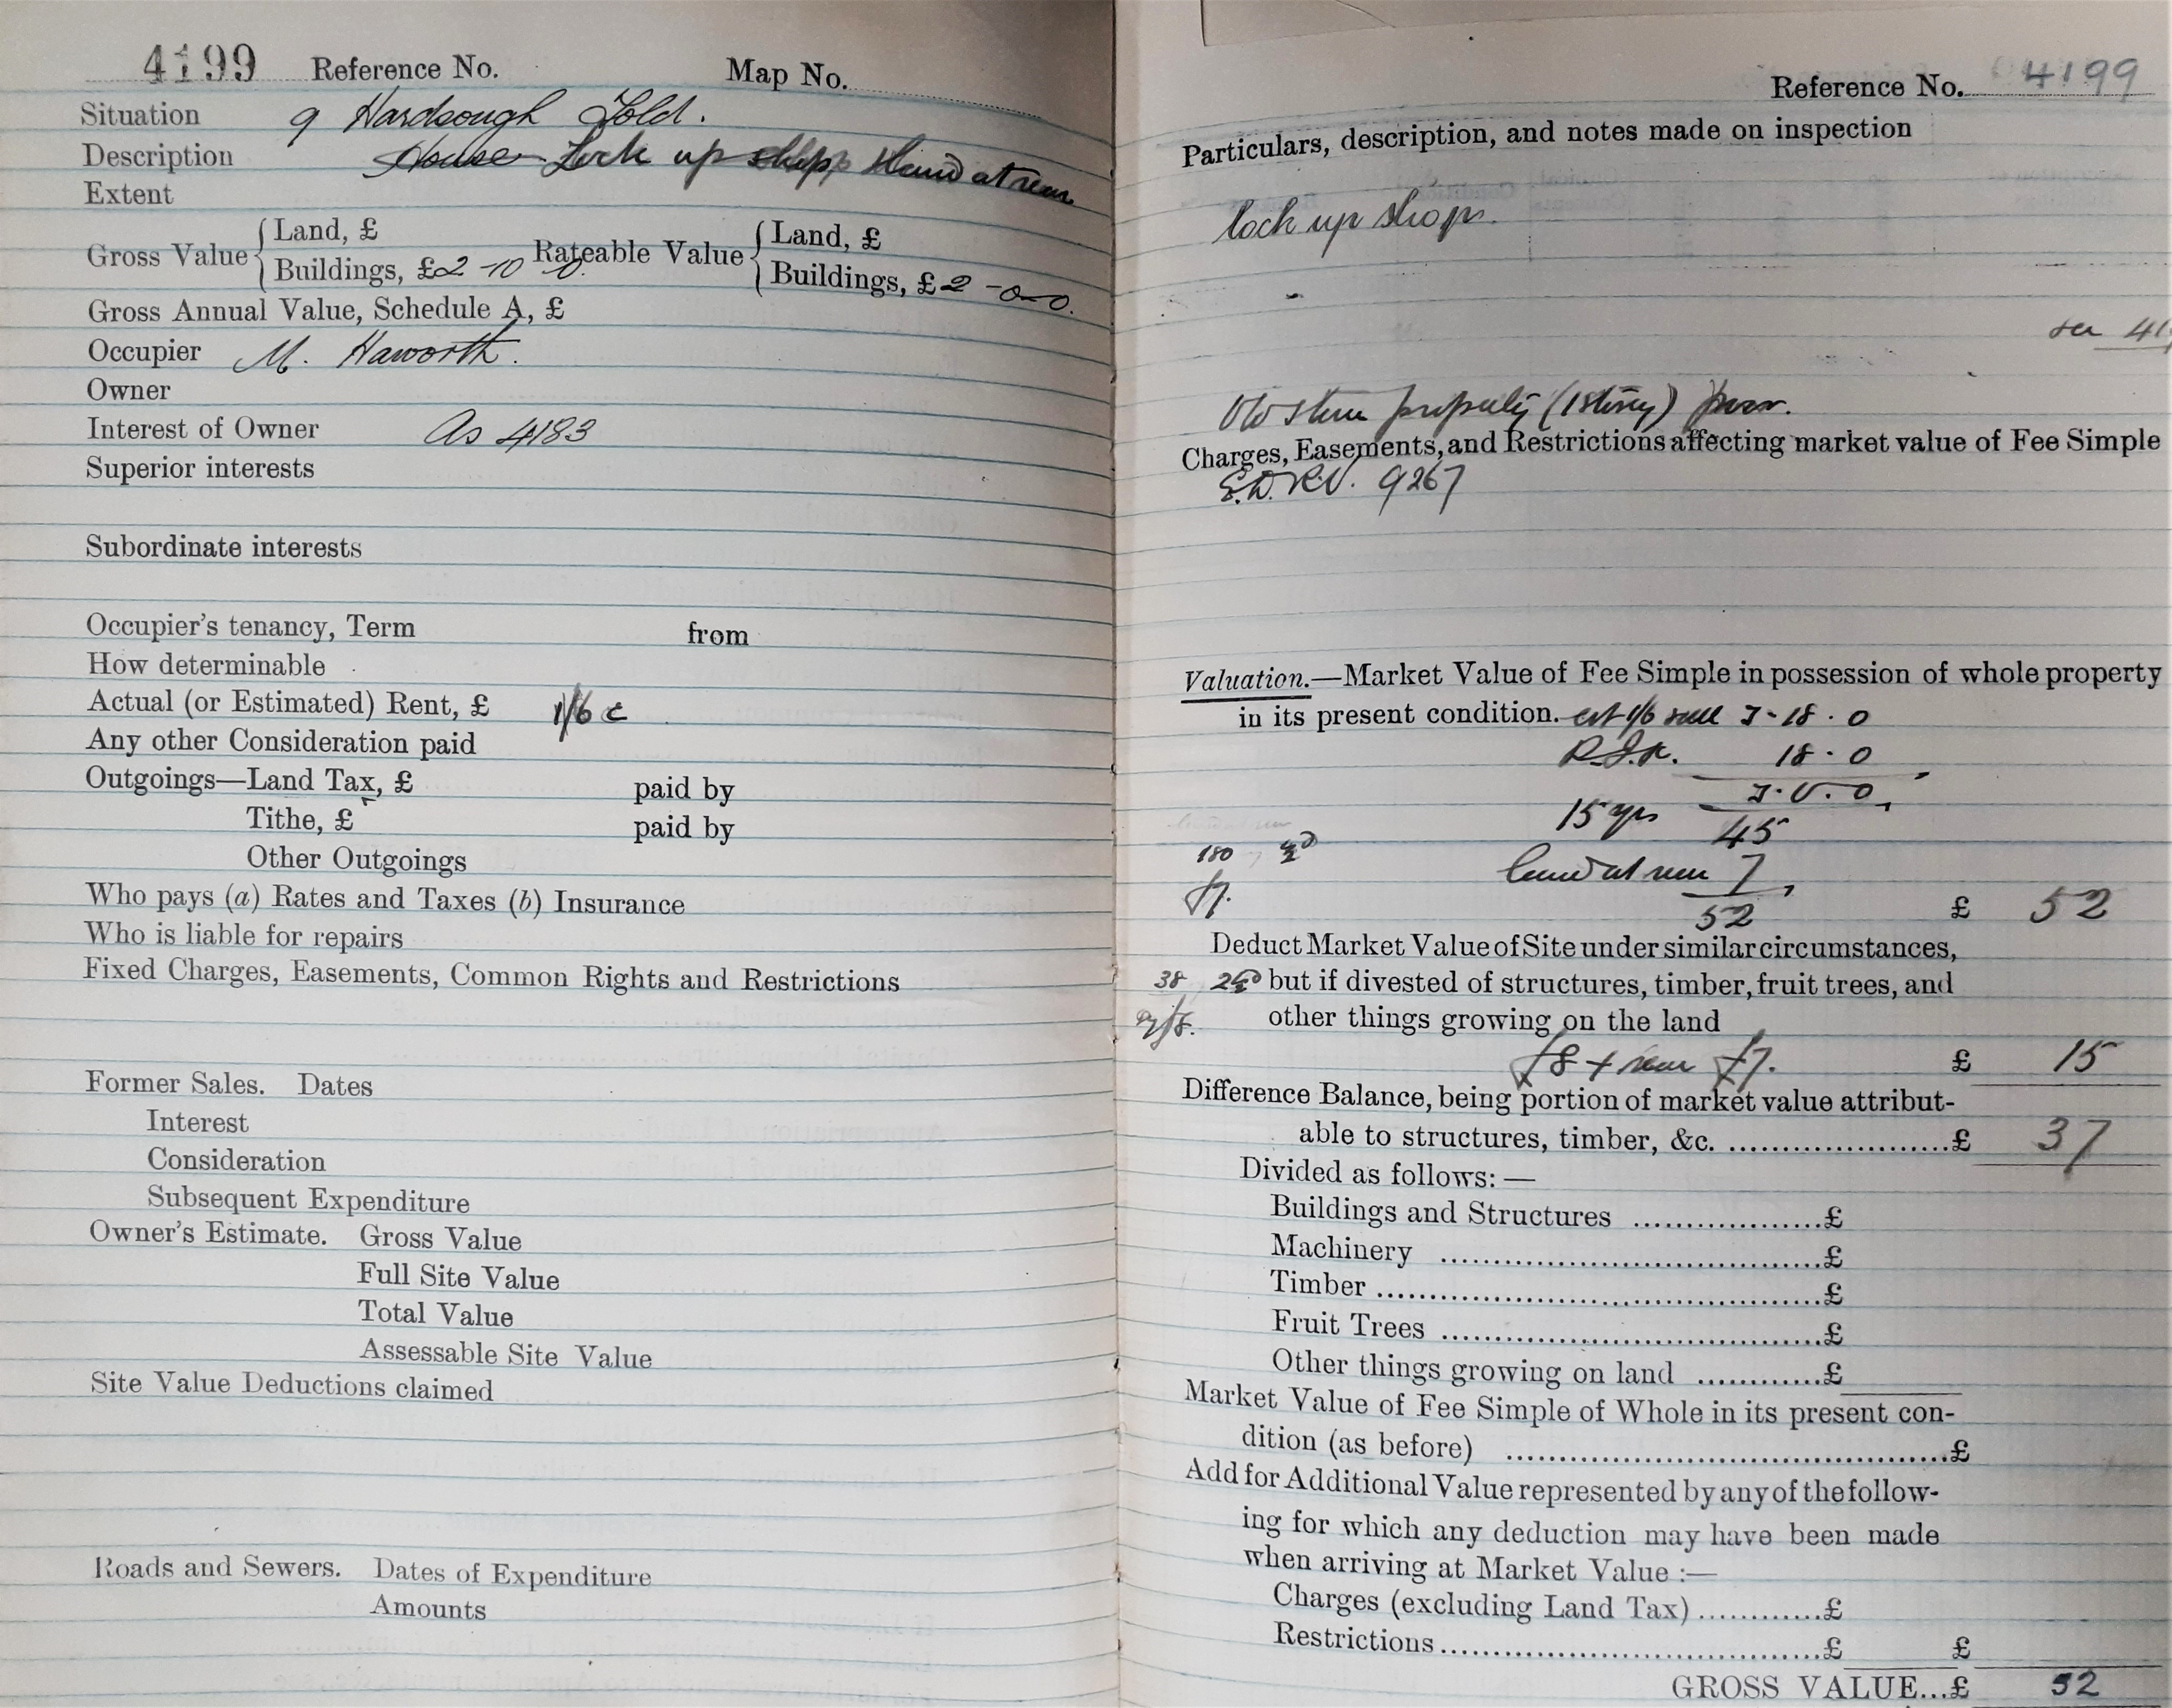 4199 Reference No. Map No.
Situation 9 Hardsough Fold.
Description House Lock up shop & land at rear
Extent
Gross Value { Land, £ Rateable Value { Land, £
Buildings, £2-10-0. Buildings, £2-0-0.
Gross Annual Value, Schedule A, £
Occupier M. Haworth.
Owner
Interest of Owner As 4183
Superior interests
Subordinate interests
Occupier's tenancy, Term from
How determinable
Actual (or Estimated) Rent, £ 1/6 c
Any other Consideration paid
Outgoings—Land Tax, £ paid by
Tithe, £ paid by
Other Outgoings
Who pays (a) Rates and Taxes (b) Insurance
Who is liable for repairs
Fixed Charges, Easements, Common Rights and Restrictions
Former Sales. Dates
Interest
Consideration
Subsequent Expenditure
Owner's Estimate. Gross Value
Full Site Value
Total Value
Assessable Site Value
Site Value Deductions claimed
Roads and Sewers. Dates of Expenditure
Amounts
Reference No. 4199
Particulars, description, and notes made on inspection
lock up shop.
Old stone property (1 storey) poor.
Charges, Easements, and Restrictions affecting market value of Fee Simple
9267
Valuation.—Market Value of Fee Simple in possession of whole property
in its present condition. est 1/6 3-18-0
18-0
3-0-0
15 yrs 45
180
land at rear 7
£7. 52 £ 52
Deduct Market Value of Site under similar circumstances,
38 but if divested of structures, timber, fruit trees, and
other things growing on the land
£8 + rear £7. £ 15
Difference Balance, being portion of market value attribut-
able to structures, timber, &c. ....................£ 37
Divided as follows:—
Buildings and Structures ..................£
Machinery ....................................£
Timber ..........................................£
Fruit Trees ....................................£
Other things growing on land ............£
Market Value of Fee Simple of Whole in its present con-
dition (as before) ..........................................£
Add for Additional Value represented by any of the follow-
ing for which any deduction may have been made
when arriving at Market Value :—
Charges (excluding Land Tax) ............£
Restrictions....................................£ £
GROSS VALUE...£ 52